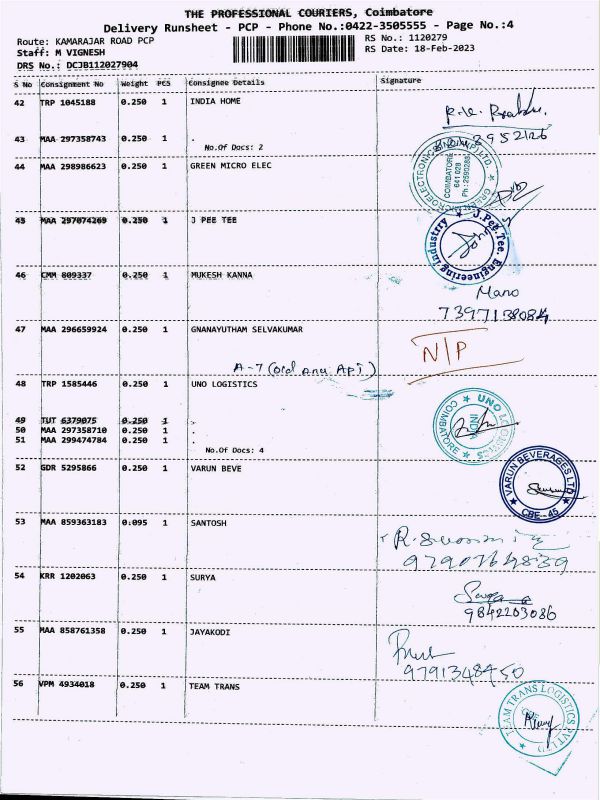 THE PROFESSIONAL COURIERS, Coimbatore
Delivery Runsheet - PCP - Phone No.:0422-3505555 - Page No.:4
Route: KAMARAJAR ROAD PCP
Staff: M VIGNESH
DRS No.: DCJB112027904
RS No.: 1120279
RS Date: 18-Feb-2023
S No Consignment No Weight PCS Consignee Details Signature
42 TRP 1045188 0.250 1 INDIA HOME
43 MAA 297358743 0.250 1 .
No.Of Docs: 2
44 MAA 298986623 0.250 1 GREEN MICRO ELEC
COIMBATORE
641 028
45 MAA 297074269 0.250 1 J PEE TEE
J.Pee.Tee. Engineering Industrry
46 CMM 809337 0.250 1 MUKESH KANNA
Mano
47 MAA 296659924 0.250 1 GNANAYUTHAM SELVAKUMAR
N/P
48 TRP 1585446 0.250 1 UNO LOGISTICS
UNO LOGISTICS COIMBATORE
INDIA
49 TUT 6379075 0.250 1 .
50 MAA 297358710 0.250 1 .
51 MAA 299474784 0.250 1 .
No.Of Docs: 4
52 GDR 5295866 0.250 1 VARUN BEVE
VARUN BEVERAGES LTD
CBE-45
53 MAA 859363183 0.095 1 SANTOSH
54 KRR 1202063 0.250 1 SURYA
9842203086
55 MAA 858761358 0.250 1 JAYAKODI
9791348450
56 VPM 4934018 0.250 1 TEAM TRANS
TEAM TRANS LOGISTICS PVT LTD